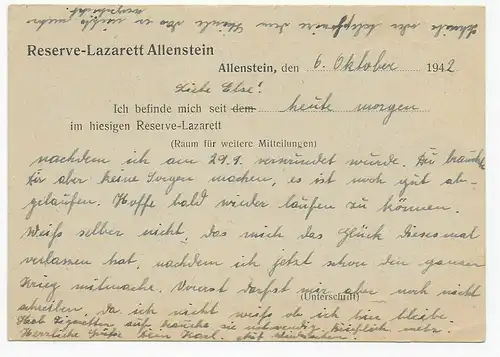 Schreibe oder telephoniere dem Heinle das er nicht mehr
Reserve-Lazarett Allenstein
Allenstein, den 6. Oktober 1942
Liebe Else!
Ich befinde mich seit dem heute morgen
im hiesigen Reserve-Lazarett
(Raum für weitere Mitteilungen)
nachdem ich am 29.9. verwundet wurde. Du brauchst
Dir aber keine Sorgen machen, es ist noch gut ab-
gelaufen. Hoffe bald wieder laufen zu können.
Weiß selber nicht, das mich das Glück diesesmal
verlassen hat, nachdem ich jetzt schon den ganzen
Krieg mitmache. Vorerst darfst mir aber noch nicht
(Unterschrift)
schreiben, da ich nicht weiß ob ich hier bleibe.
Heb Zigaretten auf, brauche sie notwendig
Herzliche Grüße Dein Karl.